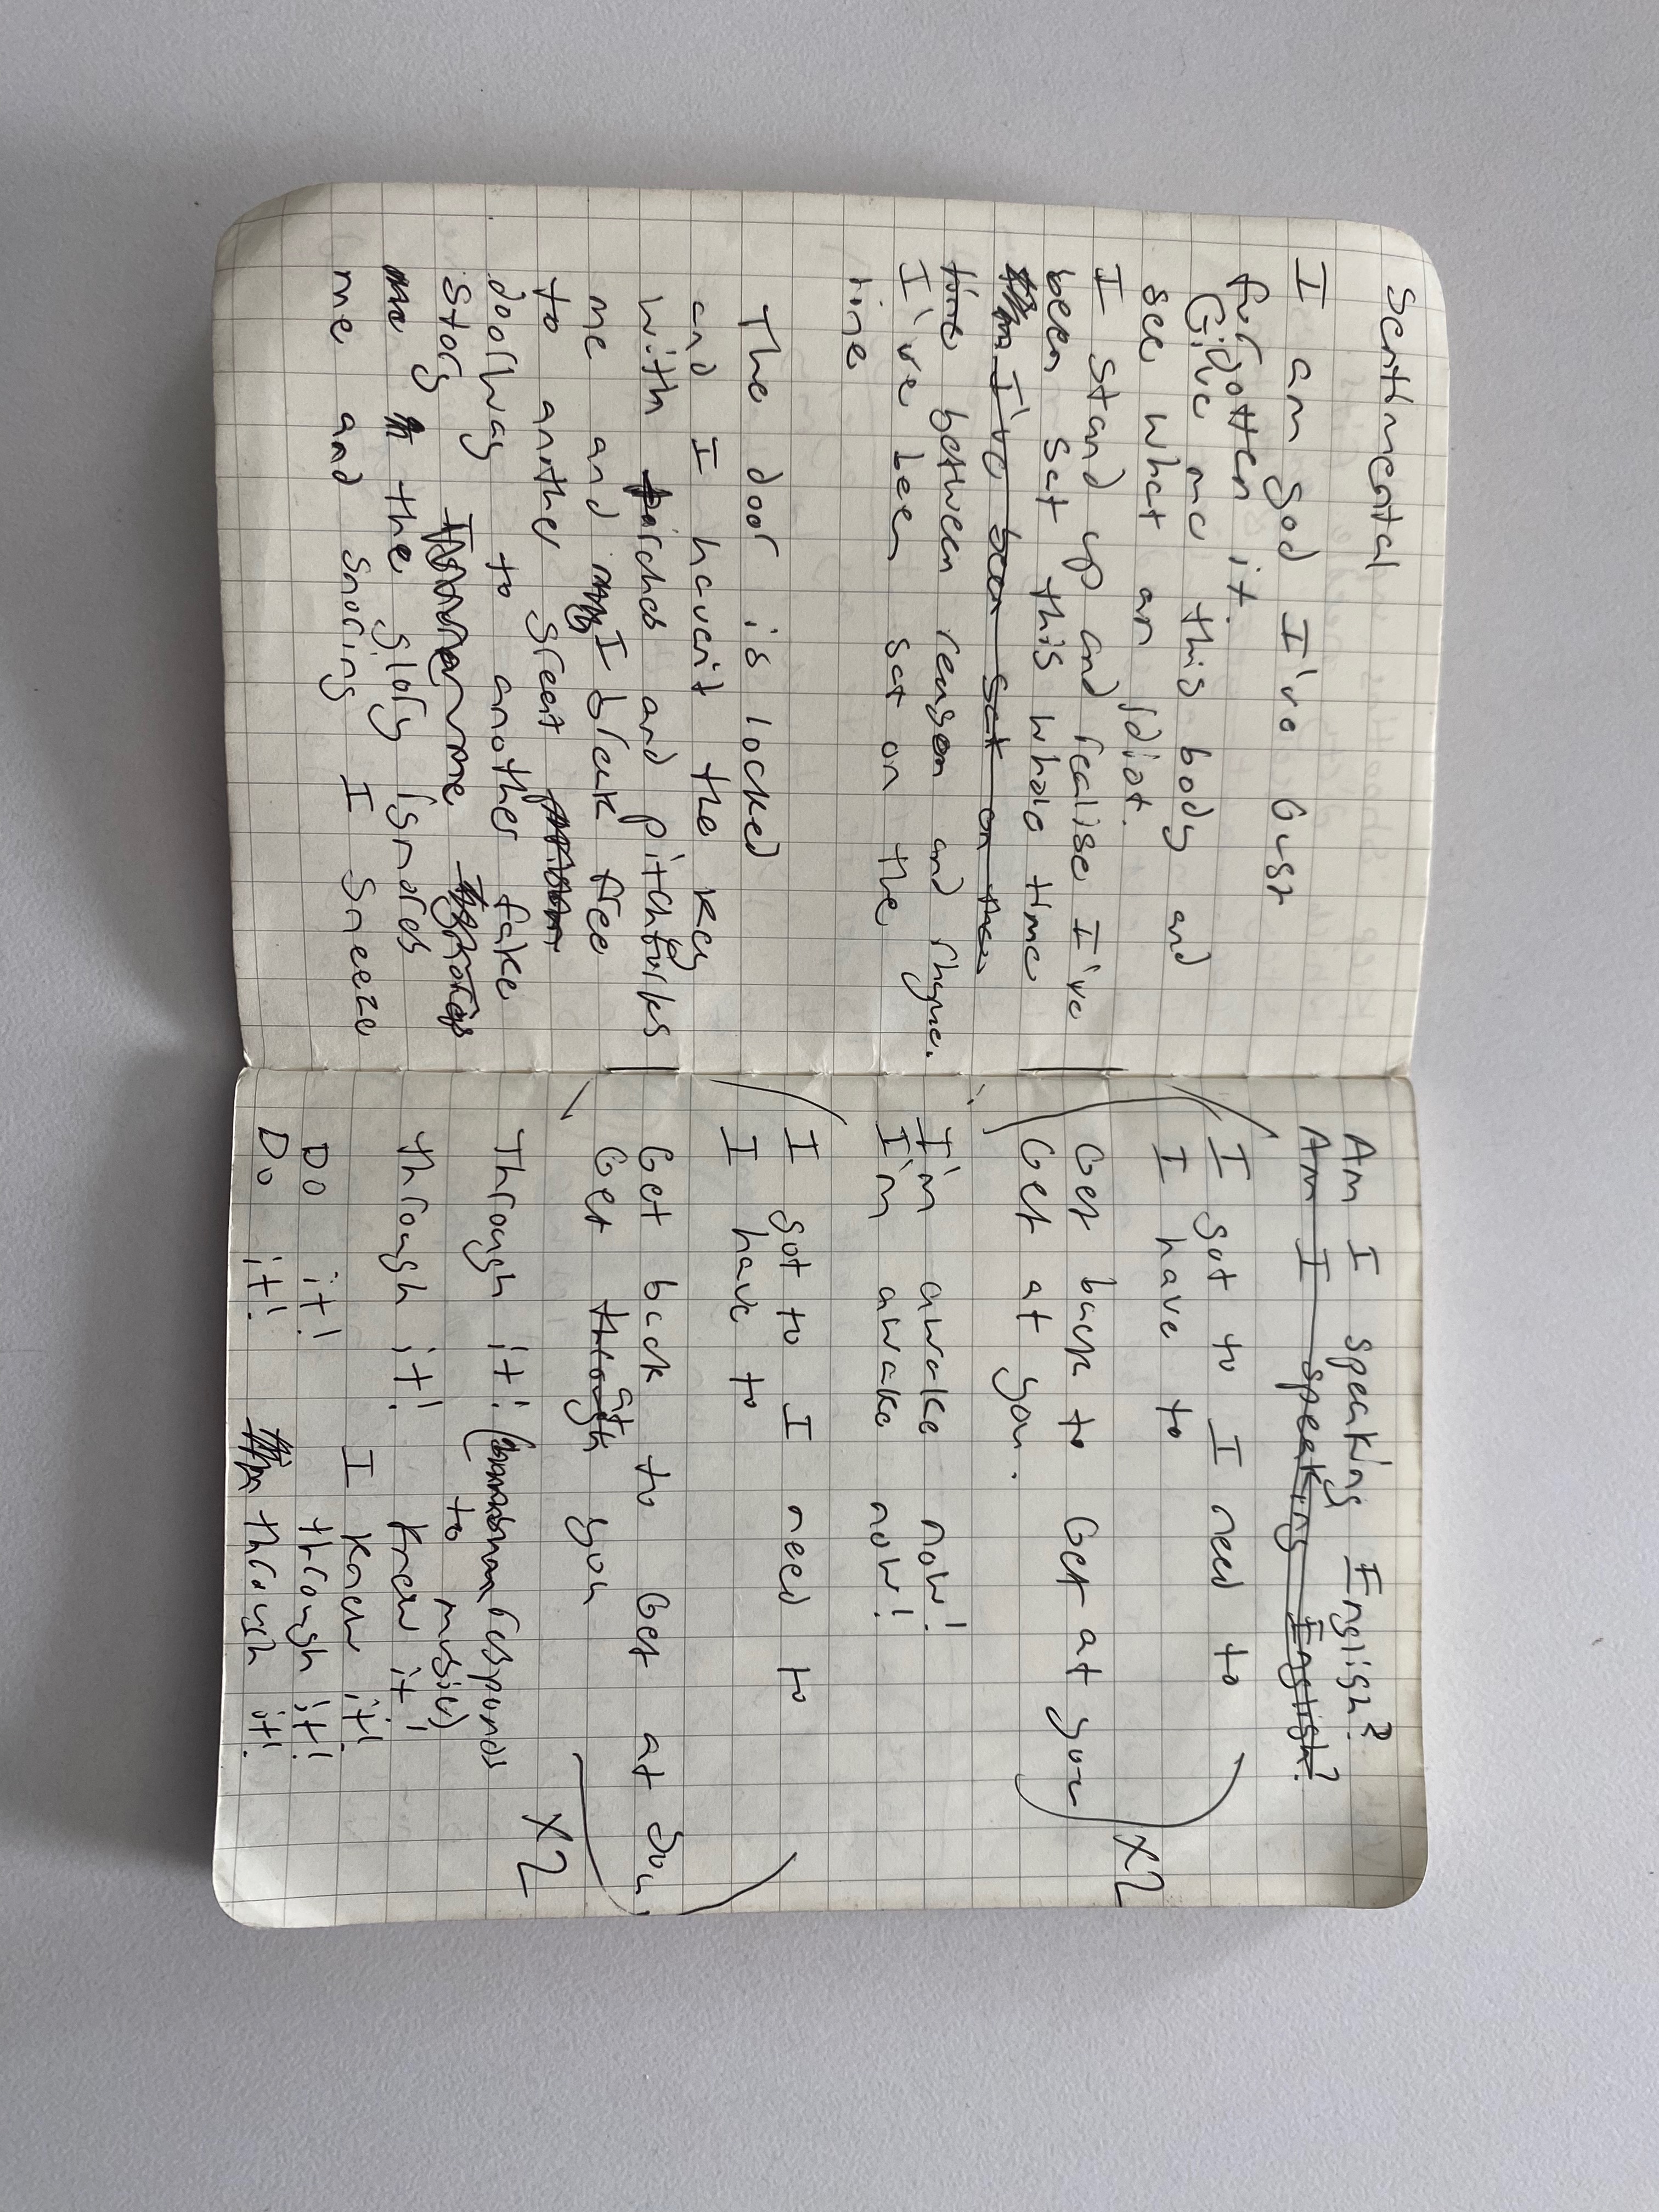 Sentimental
I am god I've Just
forgotten it.
Give me this body and
see what an idiot.
I stand up and realise I've
been sat this whole time
I've been sat on the
time between reason and rhyme.
I've been sat on the
line
The door is locked
and I havent the key
with torches and pitchforks
me and I break free
to another great
doorway to another fake
story me
my the glory ignores
me and snoring I sneeze
Am I speaking English?
Am I speaking English?
I got to I need to
I have to
Get back to Get at you
Get at you.
x2
I'm awake now!
I'm awake now!
I got to I need to
I have to
Get back to Get at you
Get at you
x2
Through it! (responds
to music)
through it! I knew it!
I knew it!
Do it! through it!
Do it! through it!